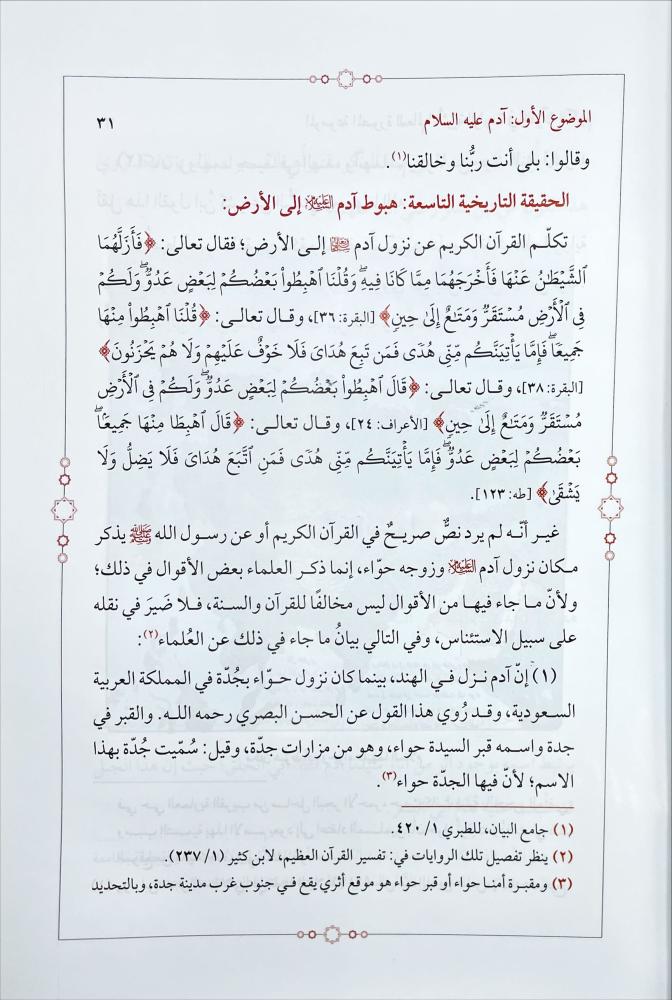 الموضوع الأول: آدم عليه السلام ٣١
وقالوا: بلى أنت ربُّنا وخالقنا(١).
الحقيقة التاريخية التاسعة: هبوط آدم عليه السلام إلى الأرض:
تكلّم القرآن الكريم عن نزول آدم عليه السلام إلى الأرض؛ فقال تعالى: ﴿فَأَزَلَّهُمَا
ٱلشَّيْطَٰنُ عَنْهَا فَأَخْرَجَهُمَا مِمَّا كَانَا فِيهِ ۖ وَقُلْنَا ٱهْبِطُوا۟ بَعْضُكُمْ لِبَعْضٍ عَدُوٌّ ۖ وَلَكُمْ
فِى ٱلْأَرْضِ مُسْتَقَرٌّ وَمَتَٰعٌ إِلَىٰ حِينٍ﴾ [البقرة: ٣٦]، وقال تعالى: ﴿قُلْنَا ٱهْبِطُوا۟ مِنْهَا
جَمِيعًا ۖ فَإِمَّا يَأْتِيَنَّكُم مِّنِّى هُدًى فَمَن تَبِعَ هُدَاىَ فَلَا خَوْفٌ عَلَيْهِمْ وَلَا هُمْ يَحْزَنُونَ﴾
[البقرة: ٣٨]، وقال تعالى: ﴿قَالَ ٱهْبِطُوا۟ بَعْضُكُمْ لِبَعْضٍ عَدُوٌّ ۖ وَلَكُمْ فِى ٱلْأَرْضِ
مُسْتَقَرٌّ وَمَتَٰعٌ إِلَىٰ حِينٍ﴾ [الأعراف: ٢٤]، وقال تعالى: ﴿قَالَ ٱهْبِطَا مِنْهَا جَمِيعًۢا ۖ
بَعْضُكُمْ لِبَعْضٍ عَدُوٌّ ۖ فَإِمَّا يَأْتِيَنَّكُم مِّنِّى هُدًى فَمَنِ ٱتَّبَعَ هُدَاىَ فَلَا يَضِلُّ وَلَا
يَشْقَىٰ﴾ [طه: ١٢٣].
غير أنّه لم يرد نصٌّ صريحٌ في القرآن الكريم أو عن رسول الله ﷺ يذكر
مكان نزول آدم عليه السلام وزوجه حوّاء، إنما ذكر العلماء بعض الأقوال في ذلك؛
ولأنّ ما جاء فيها من الأقوال ليس مخالفًا للقرآن والسنة، فلا ضَيرَ في نقله
على سبيل الاستئناس، وفي التالي بيانُ ما جاء في ذلك عن العُلماء(٢):
(١) إنّ آدم نزل في الهند، بينما كان نزول حوّاء بجُدّة في المملكة العربية
السعودية، وقد رُوي هذا القول عن الحسن البصري رحمه الله. والقبر في
جدة واسمه قبر السيدة حواء، وهو من مزارات جدّة، وقيل: سُمّيت جُدّة بهذا
الاسم؛ لأنّ فيها الجدّة حواء(٣).
(١) جامع البيان، للطبري ١/ ٤٢٠.
(٢) ينظر تفصيل تلك الروايات في: تفسير القرآن العظيم، لابن كثير (١/ ٢٣٧).
(٣) ومقبرة أمنا حواء أو قبر حواء هو موقع أثري يقع في جنوب غرب مدينة جدة، وبالتحديد